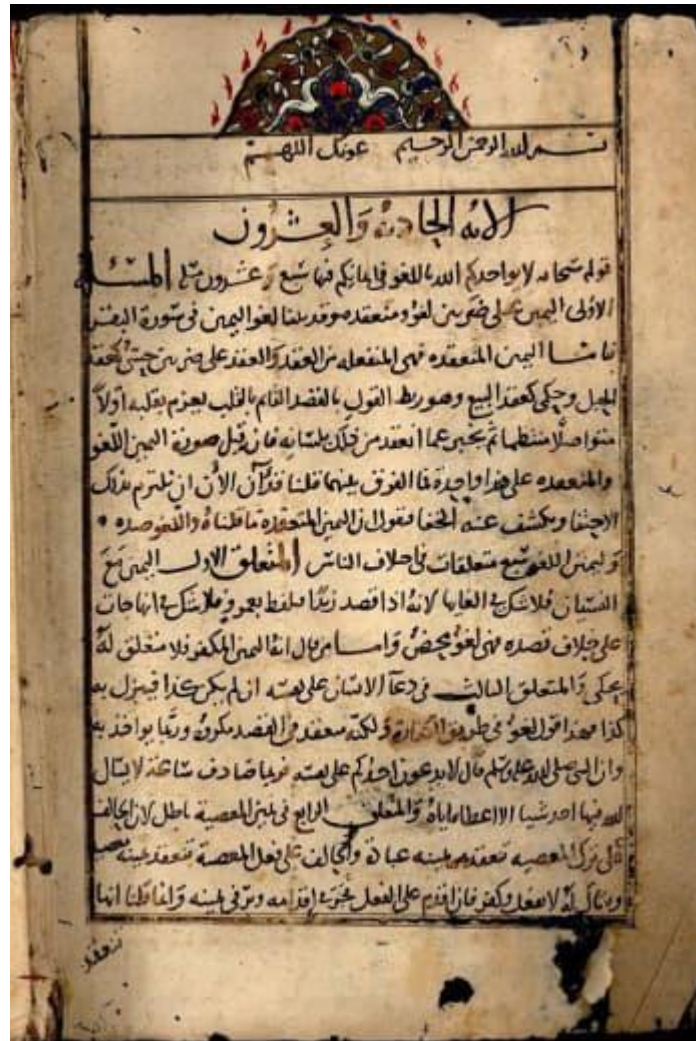 بسم الله الرحمن الرحيم عونك اللهم
الآيه الحاديه والعشرون
قوله سبحانه لا يواخدكم الله باللغو في ايمانكم فيها سبع وعشرون مسله المسئلة
الاولى اليمين على ضربين لغو ومنعقده وقد بينا لغو اليمين في سورة البقرة
فاما اليمين المنعقده فهي المنفعله من العقد والعقد على ضربين حسي كعقد
الحبل وحكمي كعقد البيع وهو ربط القول بالقصد القائم بالقلب يعزم بقلبه اولا
متواصلا منتظما ثم يخبر عما انعقد من ذلك بلسانه فان قيل صورة اليمين اللغو
والمنعقده على هذا واحدة فما الفرق بينهما قلنا قد آن الآن ان نلتزم بذلك
الاحتفا ونكشف عنه الخفا فنقول ان اليمين المنعقدة ما قلناه واللغو ضده
وليمين اللغو سبع متعلقات في اختلاف الناس المتعلق الاول اليمين مع
النسيان فلا شك في الغايها لانه اذا قصد زيدا فلفظ بعمرو فلا شك في انها جات
على خلاف قصده فهي لغو محض واما من قال انه اليمين المكفر فلا متعلق له
يحكى والمتعلق الثالث في دعآ الانسان على نفسه ان لم يكن كذا فينزل به
كذا فهذا قول لغو في طريق الكفارة ولكنه منعقد في القصد مكروه وربما يواخذ به
وان النبي صلى الله عليه وسلم قال لا يدعون احدكم على نفسه فربما صادف ساعة لا يسال
الله فيها احد شيا الا اعطاه اياه والمتعلق الرابع في يمين المعصية باطل لان الحالف
على ترك المعصيه تنعقد يمينه عبادة والحالف على فعل المعصة تنعقد يمينه
ويقال له لا تفعل وكفر فان اقدم على الفعل اقدامه وبر في يمينه وانما قلنا انها
تنعقد